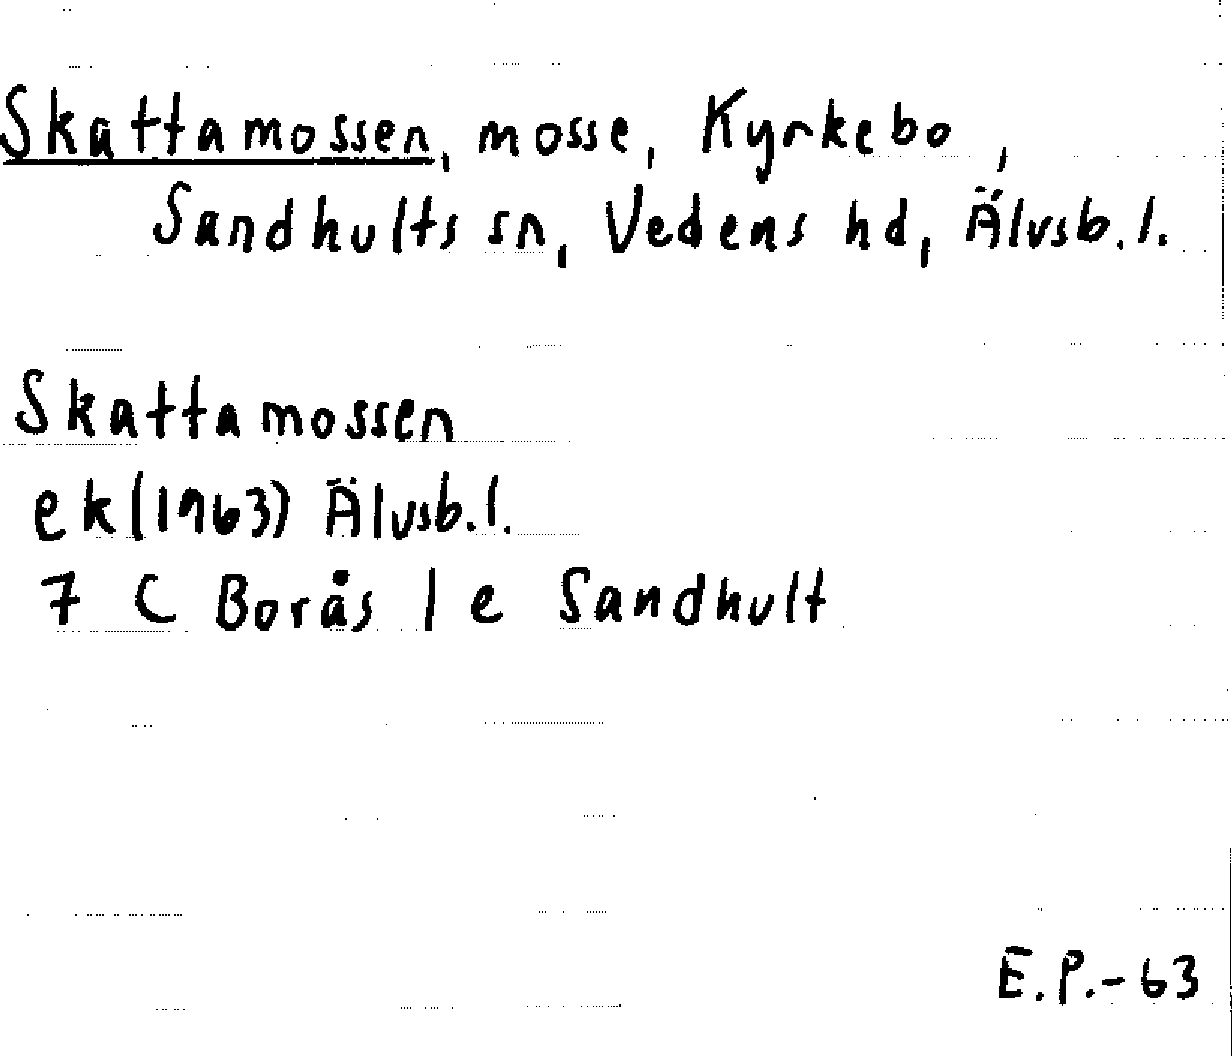 Skattamossen, mosse, Kyrkebo,
Sandhults sn, Vedens hd, Älvsb. l.
Skattamossen
ek (1963) Älvsb. l.
7 C Borås l e Sandhult
E.P.-63